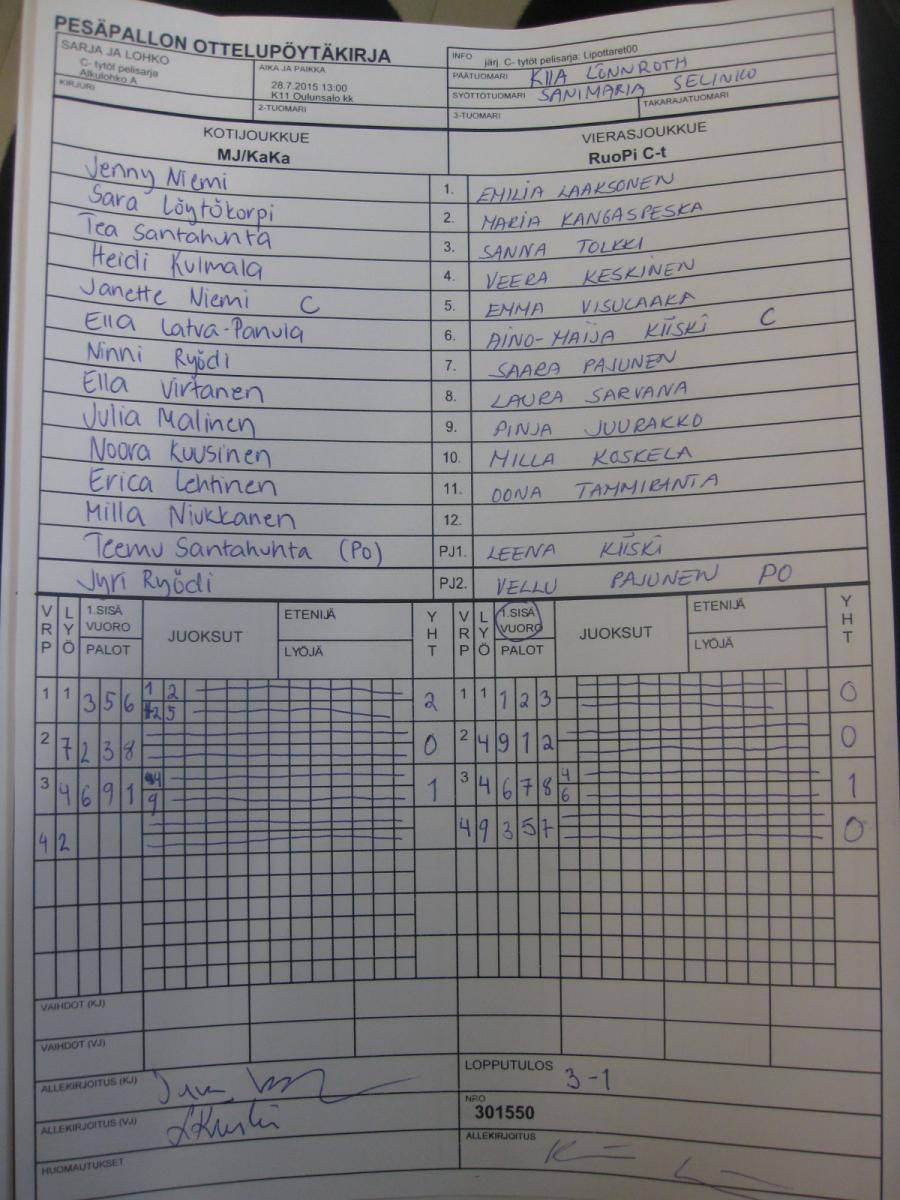 PESÄPALLON OTTELUPÖYTÄKIRJA
SARJA JA LOHKO
C- tytöt pelisarja
Alkulohko A
KIRJURI
AIKA JA PAIKKA
28.7.2015 13:00
K11 Oulunsalo kk
2-TUOMARI
INFO järj. C- tytöt pelisarja: Lipottaret00
PÄÄTUOMARI KIIA LÖNNROTH
SYÖTTÖTUOMARI SANIMARIA SELINKO
3-TUOMARI TAKARAJATUOMARI
KOTIJOUKKUE VIERASJOUKKUE
MJ/KaKa RuoPi C-t
Jenny Niemi 1. EMILIA LAAKSONEN
Sara Löytökorpi 2. MARIA KANGASPESKA
Tea Santahuhta 3. SANNA TOLKKI
Heidi Kulmala 4. VEERA KESKINEN
Janette Niemi C 5. EMMA VISULAAKA
Ella Latva-Panula 6. AINO-MAIJA KIISKI C
Ninni Ryödi 7. SAARA PAJUNEN
Ella Virtanen 8. LAURA SARVANA
Julia Malinen 9. PINJA JUURAKKO
Noora Kuusinen 10. MILLA KOSKELA
Erica Lehtinen 11. OONA TAMMIRANTA
Milla Niukkanen 12.
Teemu Santahuhta (PO) PJ1. LEENA KIISKI
Jyri Ryödi PJ2. VELLU PAJUNEN PO
VRP LYÖ 1.SISÄ VUORO PALOT JUOKSUT ETENIJÄ LYÖJÄ YHT VRP LYÖ 1.SISÄ VUORO PALOT JUOKSUT ETENIJÄ LYÖJÄ YHT
1 1 3 5 6 1 2 2 1 1 1 2 3 0
2 5
2 7 2 3 8 0 2 4 9 1 2 0
3 4 6 9 1 4 1 3 4 6 7 8 4 1
9 6
4 2 4 9 3 5 7 0
VAIHDOT (KJ)
VAIHDOT (VJ)
ALLEKIRJOITUS (KJ)
LOPPUTULOS 3-1
ALLEKIRJOITUS (VJ) LKiiski
NRO
301550
HUOMAUTUKSET
ALLEKIRJOITUS